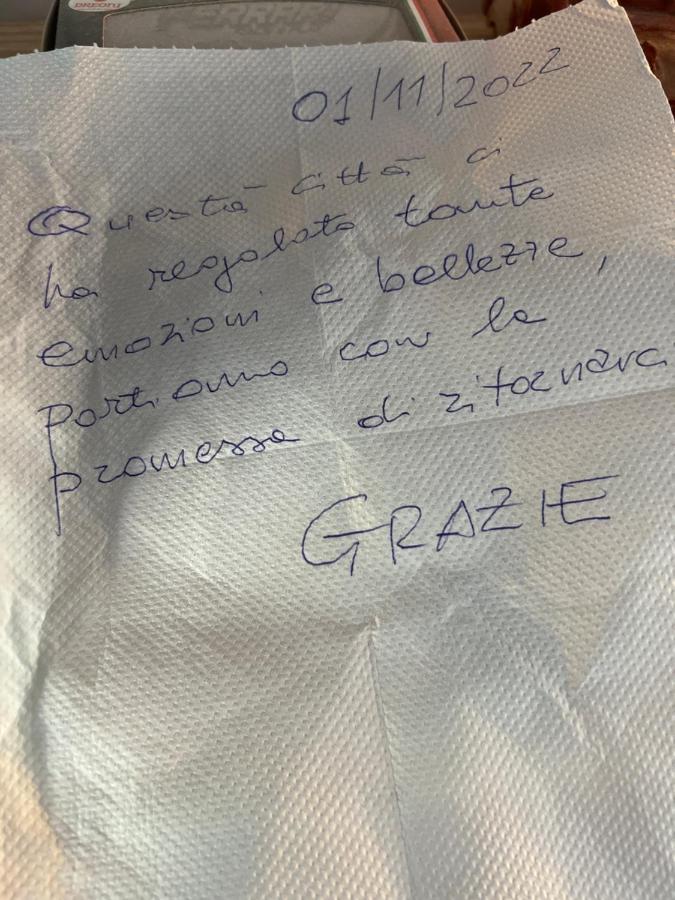 01/11/2022
Questa città ci
ha regalato tante
emozioni e bellezze,
Partiamo con la
promessa di ritornarci
GRAZIE